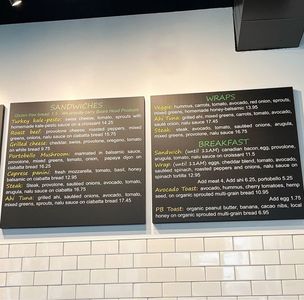 SANDWICHES
Turkey kale-pesto: swiss cheese, tomato, sprouts with
homemade kale-pesto sauce on a croissant 14.25
Roast beef: provolone cheese, roasted peppers, mixed
greens, onions, nalu sauce on ciabatta bread 15.75
Grilled cheese: cheddar, swiss, provolone, oregano, tomato
on white bread 9.75
Portobello Mushroom: marinated in balsamic sauce,
provolone, mixed greens, tomato, onion, papaya dijon on
ciabatta bread 16.25
Caprese panini: fresh mozzarella, tomato, basil, honey
balsamic on ciabatta bread 12.95
Steak: Steak, provolone, sautéed onions, avocado, tomato,
arugula, nalu sauce on ciabatta bread 17.45
Ahi Tuna: grilled ahi, sautéed onions, avocado, tomato,
mixed greens, sprouts, nalu sauce on ciabatta bread 16.75
WRAPS
Veggie: hummus, carrots, tomato, avocado, red onion, sprouts,
mixed greens, homemade honey-balsamic 13.95
Ahi Tuna: grilled ahi, mixed greens, carrots, tomato, avocado,
sauté onion, nalu sauce 17.45
Steak: steak, avocado, tomato, sautéed onions, arugula,
mixed greens, provolone, nalu sauce
BREAKFAST
Sandwich (until 11AM) canadian bacon, egg, provolone,
arugula, tomato, nalu sauce on croissant 11.5
Wrap: (until 11AM) eggs, cheddar blend, tomato, avocado,
sautéed spinach, roasted peppers and onions, nalu sauce on
spinach tortilla 12.95
Add meat 4, Add ahi 6.25, portobello 5.25
Avocado Toast: avocado, hummus, cherry tomatoes, hemp
seed, on organic sprouted multi-grain bread 10.95
Add egg 1.75
PB Toast: organic peanut butter, banana, cacao nibs, local
honey on organic sprouted multi-grain bread 6.95